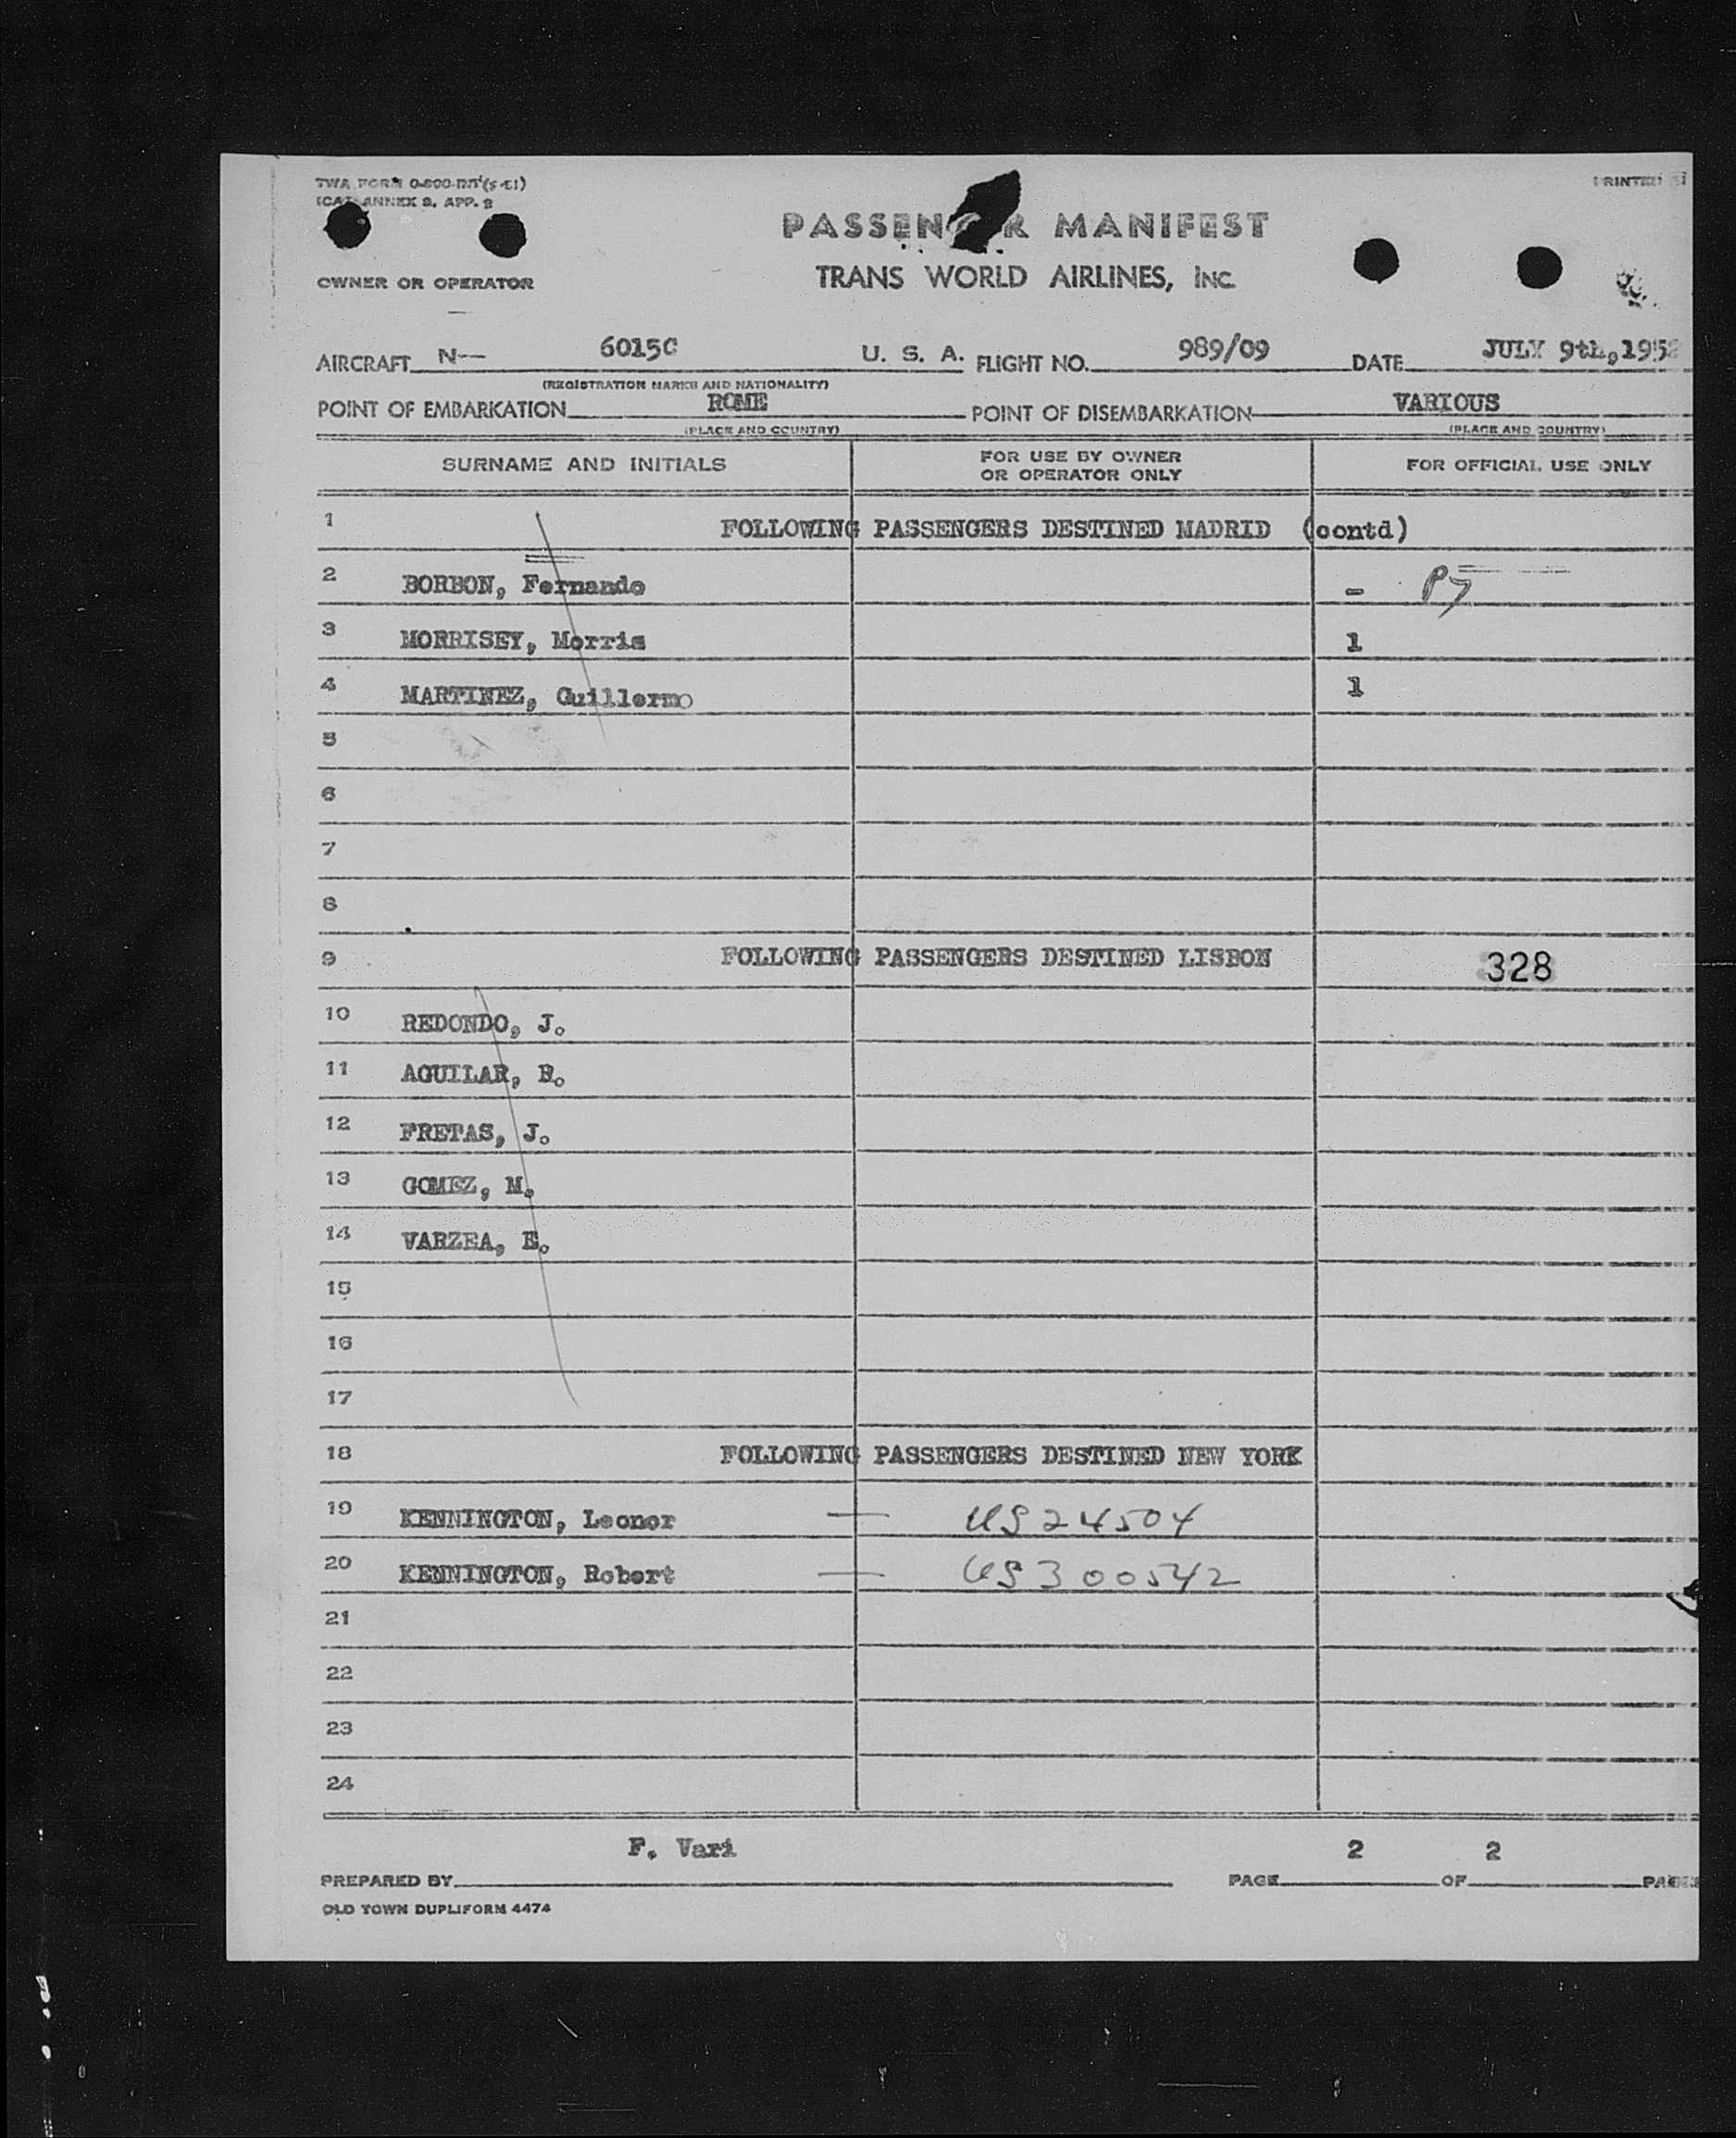 TWA FORM
ICAO ANNEX 9, APP. 2
PRINTED
PASSENGER MANIFEST
OWNER OR OPERATOR
TRANS WORLD AIRLINES, INC
AIRCRAFT N-- 6015C U. S. A. FLIGHT NO. 989/09 DATE JULY 9th,1952
(REGISTRATION MARKS AND NATIONALITY)
POINT OF EMBARKATION ROME POINT OF DISEMBARKATION VARIOUS
(PLACE AND COUNTRY) (PLACE AND COUNTRY)
SURNAME AND INITIALS FOR USE BY OWNER OR OPERATOR ONLY FOR OFFICIAL USE ONLY
1 FOLLOWING PASSENGERS DESTINED MADRID (contd)
2 BORBON, Fernando -
3 MORRISEY, Morris 1
4 MARTINEZ, Guillermo 1
5
6
7
8
9 FOLLOWING PASSENGERS DESTINED LISBON 328
10 REDONDO, J.
11 AGUILAR, R.
12 FRETAS, J.
13 GOMEZ, M.
14 VARZEA, E.
15
16
17
18 FOLLOWING PASSENGERS DESTINED NEW YORK
19 KENNINGTON, Leonor — US24504
20 KENNINGTON, Robert — US300542
21
22
23
24
PREPARED BY F. Vari PAGE 2 OF 2 PAGES
OLD TOWN DUPLIFORM 4474